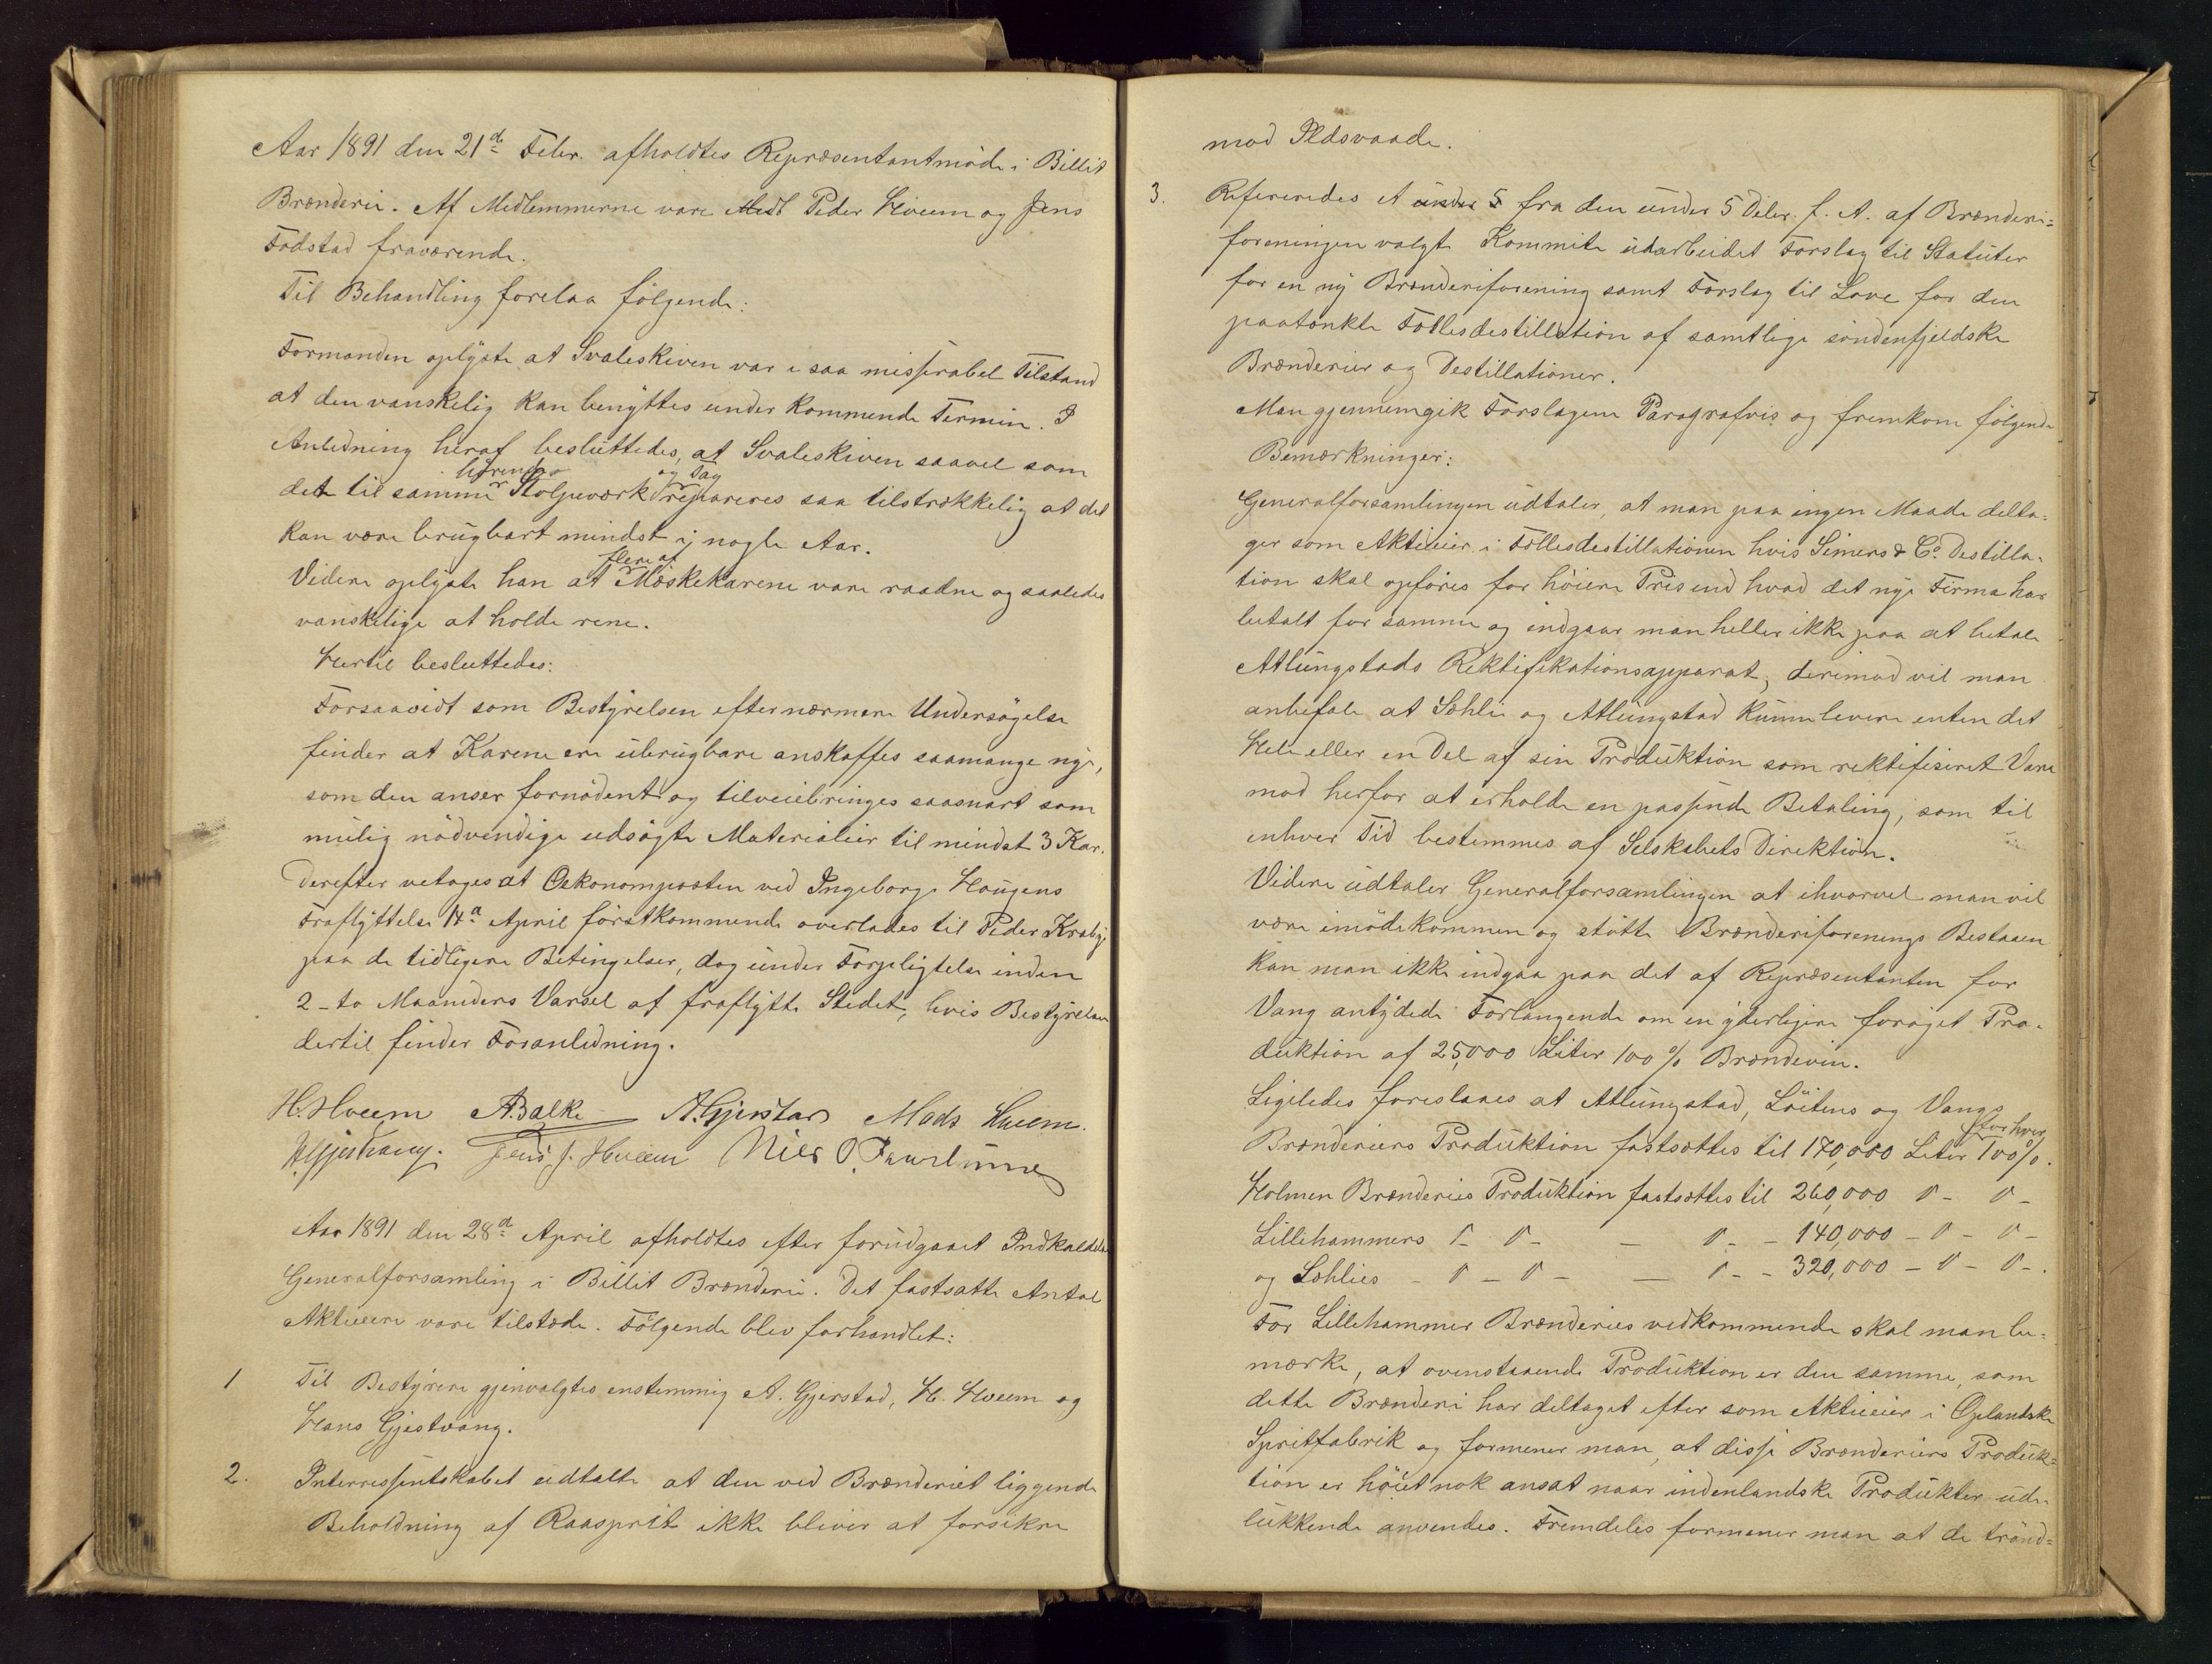 Aar 1891 den 21de Febr. afholdtes Repræsentantmøde i Billit
Brænderi. Af Medlemmerne vare Peder Hveem og Jens
Fodstad fraværende.
Til Behandling forelaa følgende:
Formanden oplyste at Svaleskiven var i saa misserabel Tilstand
at den vanskelig kan benyttes under kommende Termin. I
Anledning heraf besluttedes, at Svaleskiven saavel som
det til samme hørende Stolpeværk og Tag repareres saa tilstrækkelig at det
kan være brugbart mindst i nogle Aar.
Videre oplyste han at flere af Mæskekarene vare raadne og saaledes
vanskelige at holde rene.
Hertil besluttedes:
Forsaavidt som Bestyrelsen efter nærmere Undersøgelse
finder at Karene ere ubrugbare anskaffes saamange nye,
som den anser fornødent og tilveiebringes saasnart som
mulig nødvendige udsøgte Materialier til mindst 3 Kar.
Derefter vetoges at Oekonomposten ved Ingeborg Haugens
Fraflyttelse 14de April førstkommende overlades til Peder Kraby
paa de tidligere Betingelser, dog under Forpligtelse inden
2-to Maaneders Varsel at fraflytte Stedet, hvis Bestyrelsen
dertil finder Foranledning.
H. Hveem A. Balke A. Gjerstad Mads Hveem.
H. Gjestvang. Jens J. Hveem Niels O.
Aar 1891 den 28de April afholdtes efter forudgaaet Indkaldelse
Generalforsamling i Billit Brænderi. Det fastsatte Antal
Aktieeiere vare tilstede. Følgende blev forhandlet:
1 Til Bestyrere gjenvalgtes enstemmig A. Gjerstad, H. Hveem og
Hans Gjestvang.
2. Interressentskabet udtalte at den ved Brænderiet liggende
Beholdning af Raasprit ikke bliver at forsikre
mod Ildsvaade.
3. Refereredes et under 5 fra den under 5 Deber. f. A. af Brænderi=
foreningen valgte Kommite udarbeidet Forslag til Statuter
for en ny Brænderiforening samt Forslag til Love for den
paatænkte Fællesdestillation af samtlige søndenfjeldske
Brænderier og Destillationer.
Man gjennemgik Forslagene Paragrafvis og fremkom følgende
Bemærkninger:
Generalforsamlingen udtaler, at man paa ingen Maade delta=
ger som Aktieeier i Fællesdestillationen hvis Simers & Co. Destilla=
tion skal opføres for høiere Pris end hvad det nye Firma har
betalt for samme og indgaar man heller ikke paa at betale
Atlungstads Rektifikationsapparat, derimod vil man
anbefale at Sæhlie og Atlungstad kunne levere enten det
Hele eller en Del af sin Produktion som rektifiseret Vare
mod herfor at erholde en passende Betaling, som til
enhver Tid bestemmes af Selskabets Direktion.
Videre udtaler Generalforsamlingen at ihvorvel man vil
være imødekommen og støtte Brænderiforenings Bestaaen
kan man ikke indgaa paa det af Repræsentanten for
Vang antydede Forlangende om en yderligere forøget Pro=
duktion af 25,000 Liter 100% Brændevin.
Ligeledes foreslaaes at Atlungstad, Løitens og Vangs
Brænderiers Produktion fastsættes til 170,000 Liter 100% for hver.
Holmen Brænderies Produktion fastsættes til 260,000 〃 - 〃 -
Lillehammers 〃 - 〃 - — 〃 - - 140,000 - 〃 - 〃 -
og Sæhlies - 〃 - 〃 - — 〃 - - 320,000 - 〃 - 〃 - .
For Lillehammer Brænderies vedkommende skal man be=
mærke, at ovenstaaende Produktion er den samme, som
dette Brænderi har deltaget efter som Aktieeier i Oplandske
Spritfabrik og formener man, at disse Brænderiers Produk=
tion er høiet nok ansat naar indenlandske Produkter ude=
lukkende anvendes. Fremdeles formener man at de trønd=